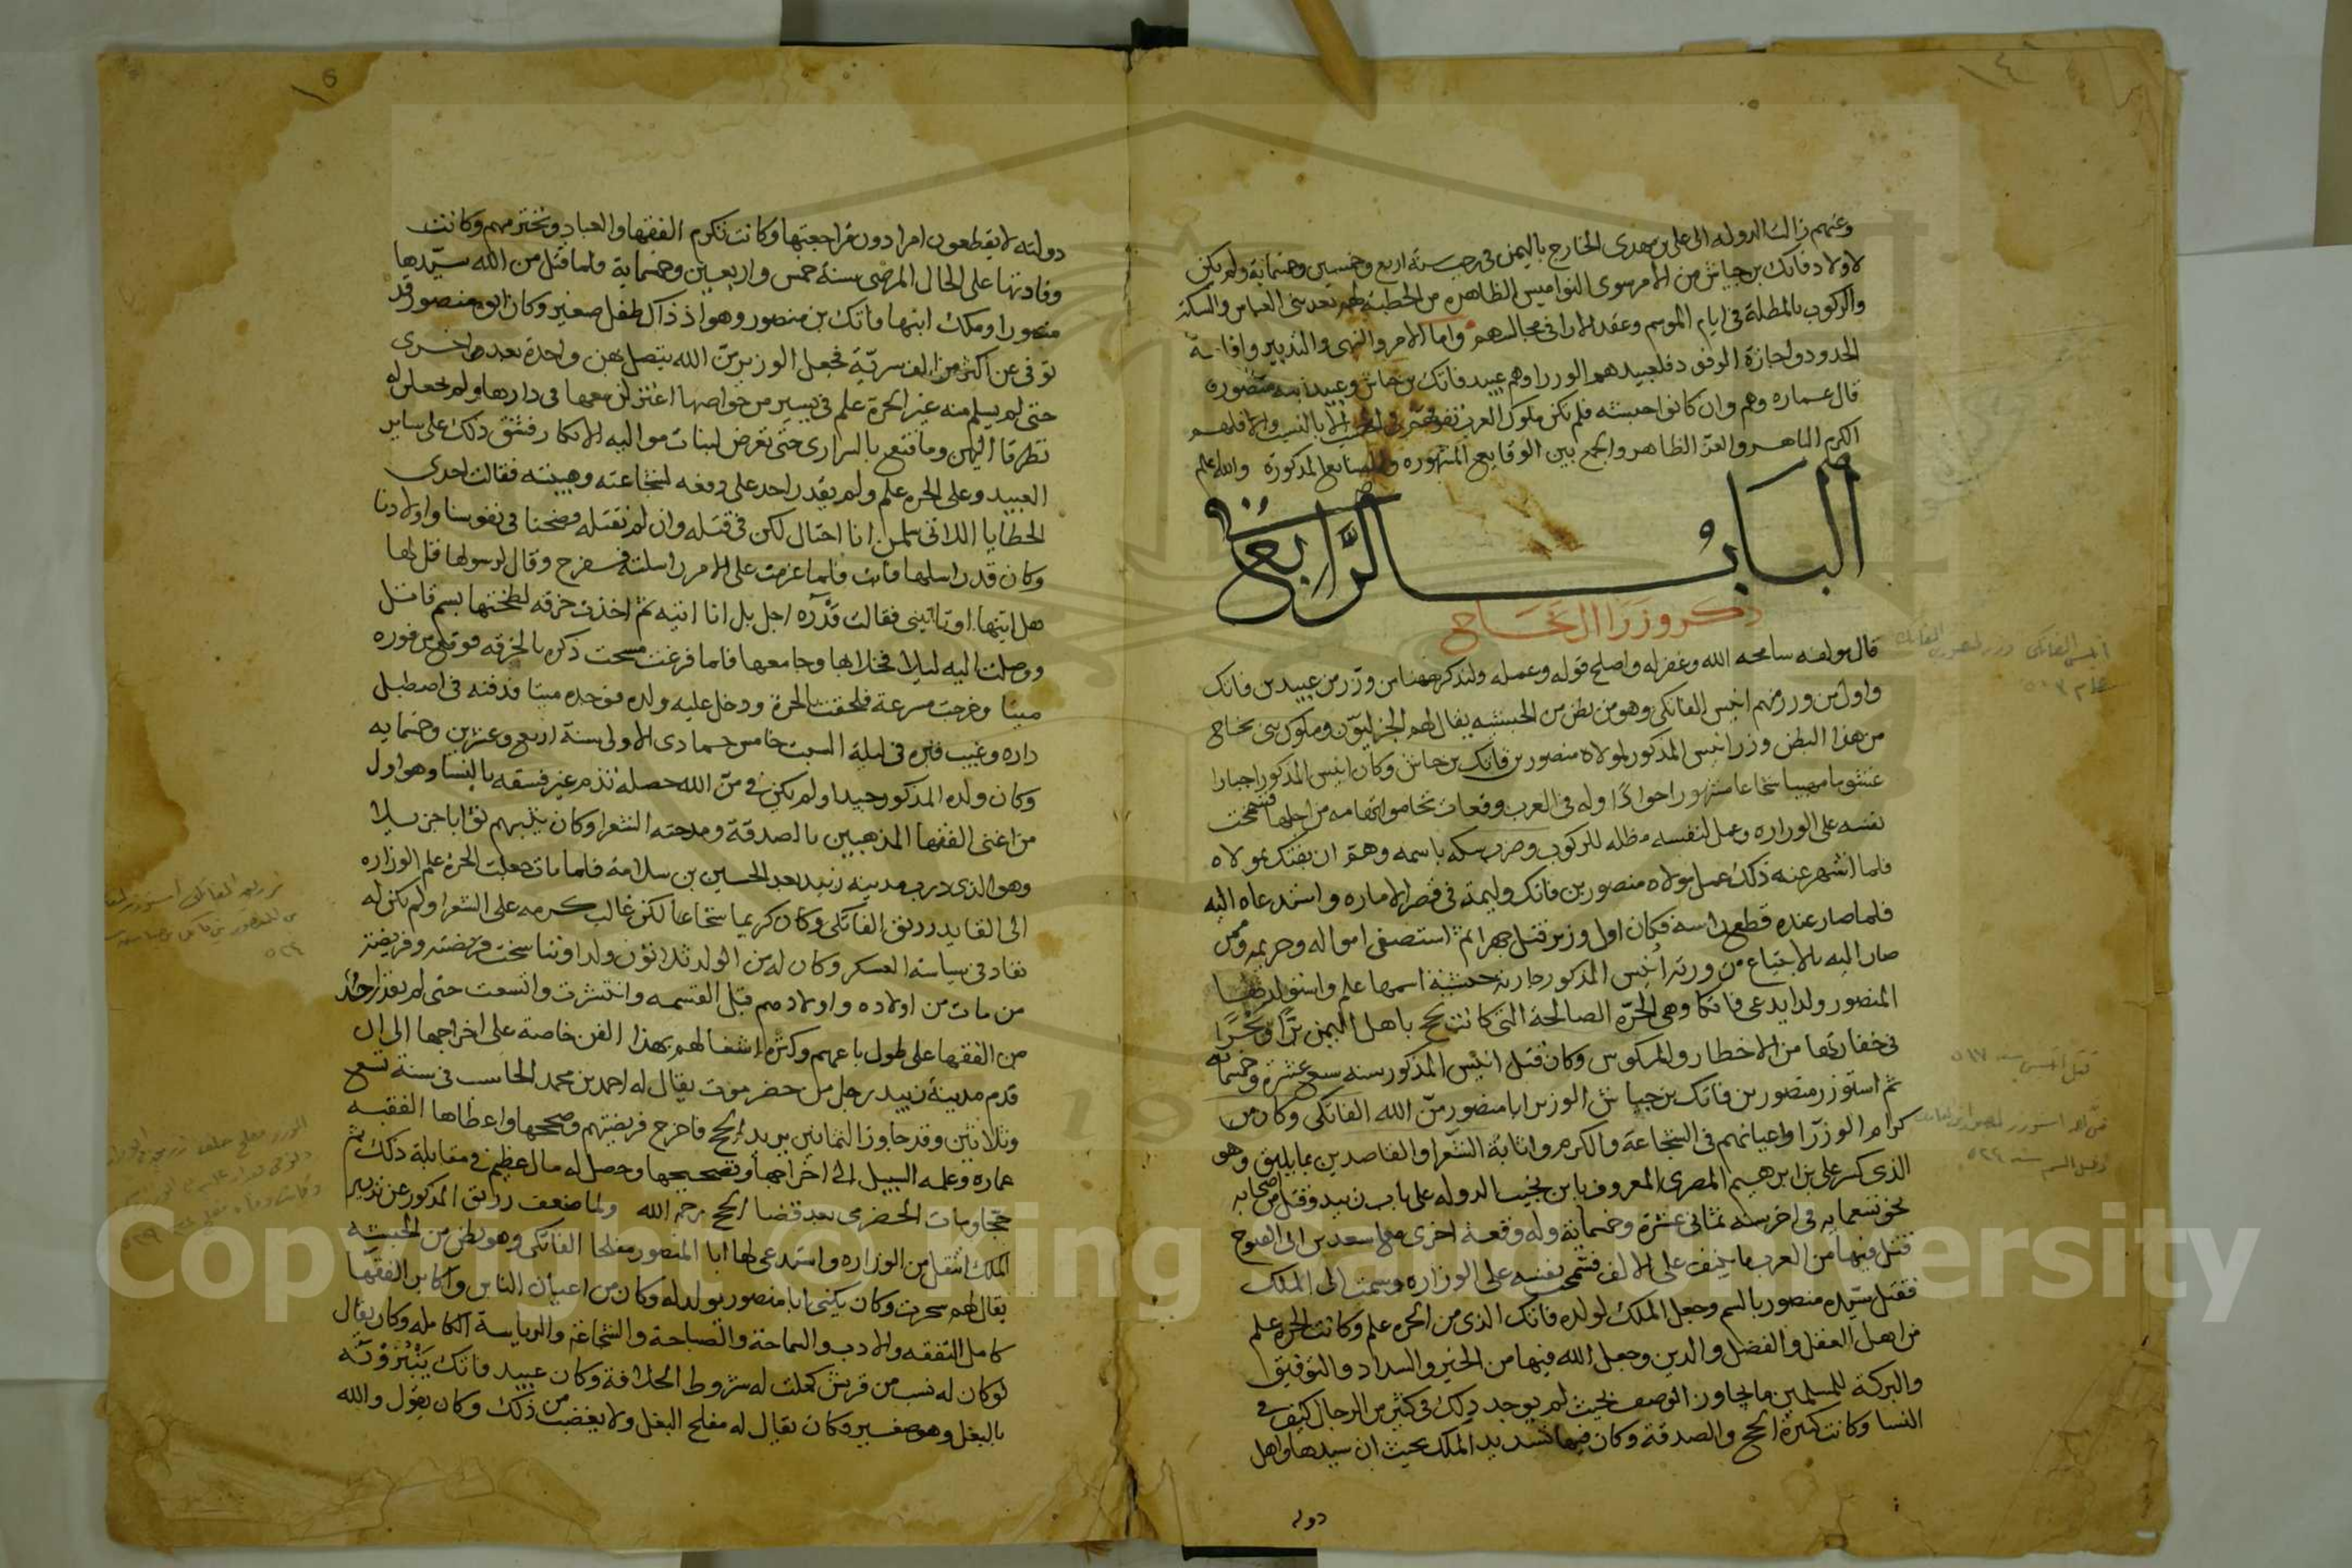 وعنهم زالت الدوله الى علي بن مهدى الخارج باليمن فى رجب سنة اربع وخمسين وخمسماية ولم يكن
لاولاد فاتك بن جياش من الامر سوى النواميس الظاهره من الخطبة لهم بعد بنى العباس والسكة
والركوب بالمظلة فى ايام الموسم وعقد الارا فى مجالسهم واما الامر والنهى والتدبير واقامة
الحدود واجازة الوفود فلعبيدهم الوزرا وهم عبيد فاتك بن جياش وعبيد ابنه منصور
قال عماره وهم وان كانوا حبشة فلم تكن ملوك العرب تفوقهم فى الحسب الا بالنسب والا فلهم
الكرم الباهر والعز الظاهر والجمع بين الوقايع المشهوره والصنايع المذكورة والله اعلم
الباب الرابع
ذكر وزرا ال نجاح
قال مولفه سامحه الله وغفر له واصلح قوله وعمله ولنذكر ههنا من وزر من عبيد بن فاتك
واول من وزر منهم انيس الفاتكى وهو من بطن من الحبشه يقال لهم الجزليون وملوك بنى نجاح
من هذا البطن وزر انيس المذكور لمولاه منصور بن فاتك بن جياش وكان انيس المذكور جبارا
غشوما مهيبا شجاعا مشهورا جوادا وله فى العرب وقعات تحاموا تهامه من اجلها فشمخت
نفسه على الوزاره وعمل لنفسه مظله للركوب وضرب سكه باسمه وهم ان يفتك بمولاه
فلما اشتهر عنه ذلك عمل مولاه منصور بن فاتك وليمة فى قصر الاماره واستدعاه اليه
فلما صار عنده قطع راسه فكان اول وزير قتل جهرا ثم استصفى امواله وحريمه وممن
صار اليه بالابتياع من ورثة انيس المذكور جارية حبشية اسمها علم واستولدها
المنصور ولدا يدعى فاتكا وهى الحرة الصالحة التى كانت تحج باهل اليمن برا وبحرا
فى خفارتها من الاخطار والمكوس وكان قتل انيس المذكور سنه سبع عشرة وخمسمايه
ثم استوزر منصور بن فاتك بن جياش الوزير ابا منصور من الله الفاتكى وكان من
كرام الوزرا واعيانهم فى الشجاعة والكرم واثابة الشعرا والقاصدين بما يليق وهو
الذى كسر على بن ابرهيم المصرى المعروف بابن نجيب الدوله على باب زبيد وقتل من اصحابه
نحو تسعمايه فى اخر سنه ثمانى عشرة وخمسماية وله وقعة اخرى مع اسعد بن ابى الفتوح
قتل فيها من العرب ما ينيف على الالف فشمخت نفسه على الوزاره وسمت الى الملك
فقتل سيده منصور بالسم وجعل الملك لولده فاتك الذى من الحره علم وكانت الحره علم
من اهل العقل والفضل والدين وجعل الله فيها من الخير والسداد والتوفيق
والبركة للمسلمين ما يجاوز الوصف بحيث لم يوجد ذلك فى كثير من الرجال كيف فى
النسا وكانت كثيرة الحج والصدقة وكان فيها تسديد الملك بحيث ان سيدها واهل
دوله
دولته لا يقطعون امرا دون مراجعتها وكانت تكرم الفقها والعباد وتحترمهم وكانت
وفاتها على الحال المرضى سنة خمس واربعين وخمسماية ولما قتل من الله سيدها
منصورا وملك ابنها فاتك بن منصور وهو اذ ذاك طفل صغير وكان ابوه منصور قد
توفى عن اكثر من الف سرية فجعل الوزير من الله يتصل بهن واحدة بعد اخرى
حتى لم يسلم منه غير الحرة علم فى يسير من خواصها اعتزلن معها فى دارها ولم يجعلن له
تطرقا اليهن وما قنع بالسرارى حتى تعرض لبنات مواليه الابكار فشق ذلك على ساير
العبيد وعلى الحره علم ولم يقدر احد على دفعه لشجاعته وهيبته فقالت احدى
الحظايا اللاتى سلمن انا احتال لكن فى قتله وان لم نقتله فضحنا فى نفوسنا واولادنا
وكان قد راسلها فابت فلما عزمت على الامر راسلته ففرح وقال لرسولها قل لها
هل ايتها او تاتينى فقالت قدره اجل بل انا اتيه ثم اخذت خرقه لطختها بسم قاتل
ووصلت اليه ليلا فخلا بها وجامعها فلما فرغت مسحت ذكره بالخرقه فوقع من فوره
ميتا وخرجت مسرعة فلحقت بالحرة ودخل عليه ولده فوجده ميتا فدفنه فى اصطبل
داره وغيب قبره فى ليلة السبت خامس جمادى الاولى سنة اربع وعشرين وخمسمايه
وكان ولده المذكور جيدا ولم يكن فى من الله خصله تذم غير فسقه بالنسا وهو اول
من اغنى الفقها المذهبيين بالصدقة ومدحته الشعرا وكان يثيبهم ثوابا جزيلا
وهو الذى درب مدينة زبيد بعد الحسين بن سلامة فلما مات جعلت الحرة علم الوزاره
الى القايد رزيق الفاتكى وكان كريما شجاعا لكن غالب كرمه على الشعرا ولم يكن له
نفاد فى سياسة العسكر وكان له من الولد ثلاثون ولدا وتناسخت فريضته وفريضة
من مات من اولاده واولادهم قبل القسمه وانتشرت واتسعت حتى لم يقدر احد
من الفقها على طول باعهم وكثرة اشتغالهم بهذا الفن خاصة على اخراجها الى ان
قدم مدينة زبيد رجل من حضرموت يقال له احمد بن محمد الحاسب فى سنة تسع
وثلاثين وقد جاوز الثمانين يريد الحج فاخرج فريضتهم وصححها واعطاها الفقيه
عماره وعلمه السبيل الى اخراجها وتصحيحها وحصل له مال عظيم فى مقابلة ذلك ثم
حج ومات الحضرمى بعد قضا الحج رحمه الله ولما ضعف رزيق المذكور عن تدبير
الملك انتقل من الوزاره واستدعى لها ابا المنصور مفلحا الفاتكى وهو بطن من الحبشه
يقال لهم سحرت وكان يكنى ابا منصور بولد له وكان من اعيان الناس واكابر الفقها
كامل التفقه والادب والسماحة والصباحة والشجاعة والرياسة الكامله وكان يقال
لو كان له نسب من قريش كملت له شروط الخلافة وكان عبيد فاتك ينبزونه
بالبغل وهو صغير وكان يقال له مفلح البغل ولا يغضب من ذلك وكان يقول والله
Copyright © King Saud University